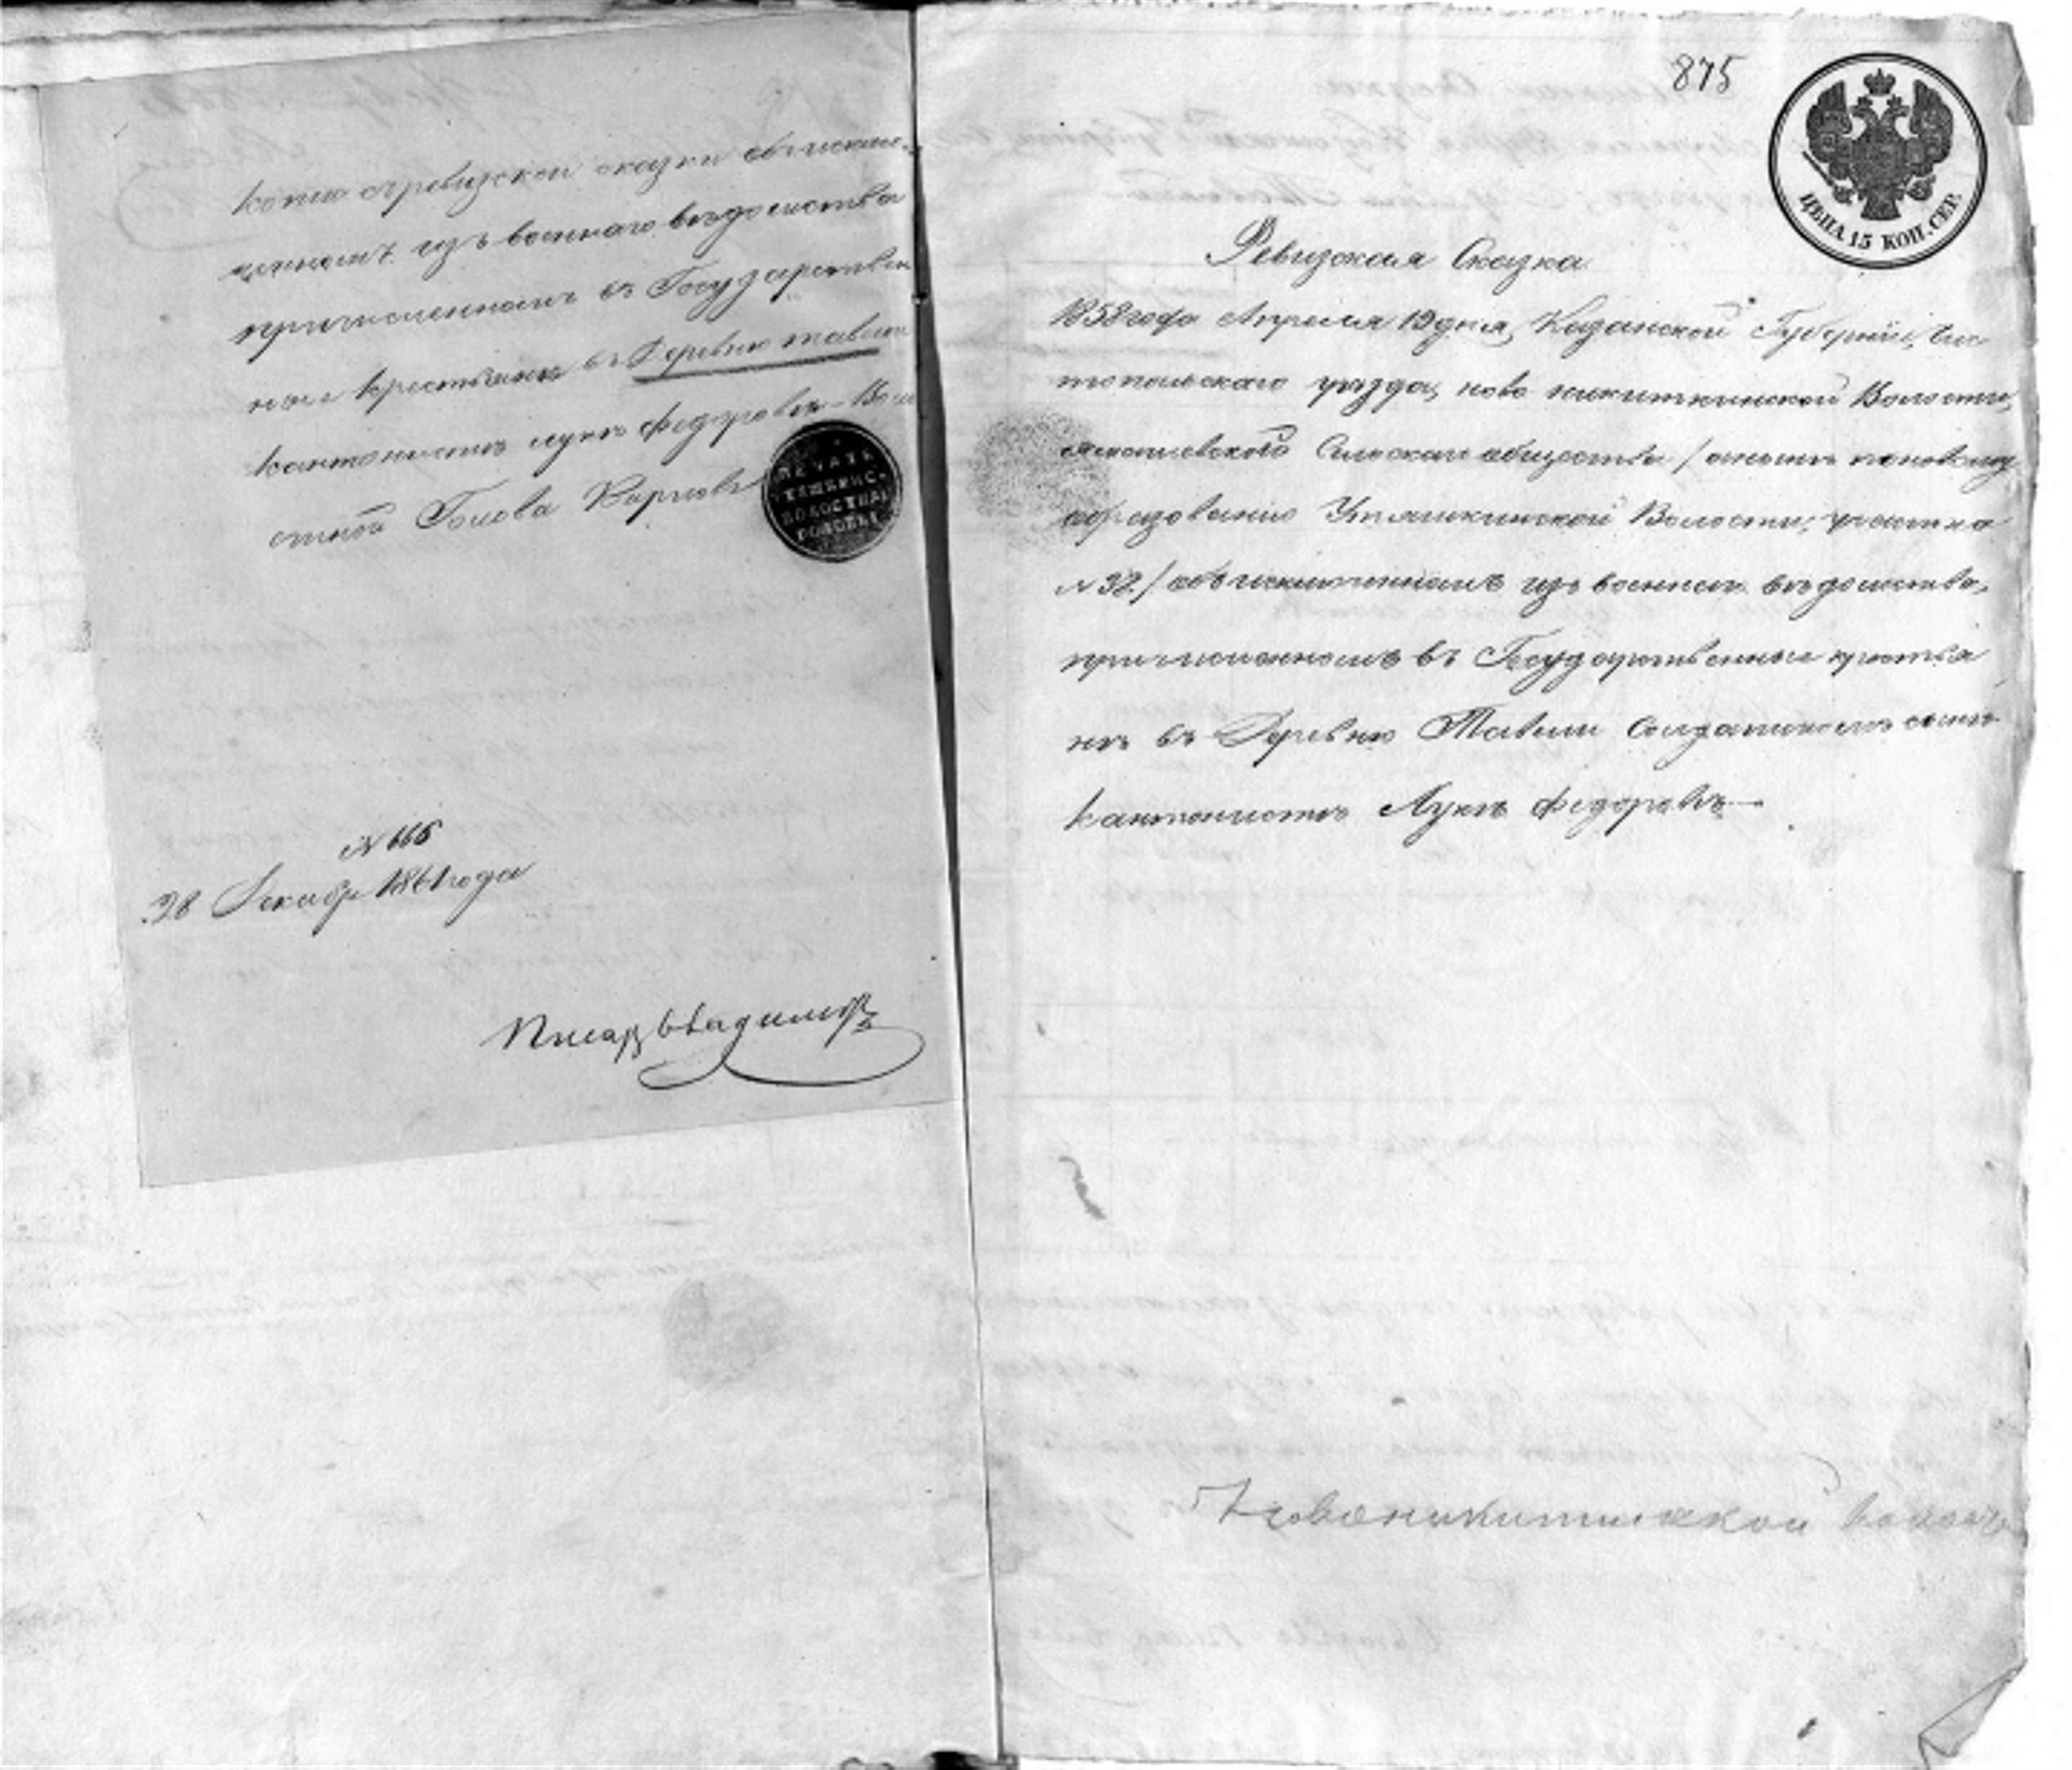 копию съ ревизской сказки объ исклю-
ченномъ изъ военнаго вѣдомства
причисленномъ въ Государствен
ные крестьяне въ Деревню тавели
кантонистѣ лукѣ Федоровѣ – Воло
стной Голова Карповъ
ПЕЧАТЬ
ВОЛОСТНАГ
ГОЛОВЫ
№ 666
28 Декабр 1861 года
Писарь
875
ЦѢНА 15 КОП. СЕР.
Ревизская Сказка
1858 года Апреля 19 дня, Казанской Губерніи, Чис
топольскаго уѣзда, ново никиткинской Волости,
Сельскаго общества / а нынѣ по новому
образованію Утяшкинской Волости, участка
№ 32 / объ исключенномъ изъ военнаго вѣдомства,
причисленномъ въ Государственные крестья
нѣ въ Деревню Тавели Солдатскомъ сынѣ
кантонистѣ Лукѣ Федоровѣ —
волости